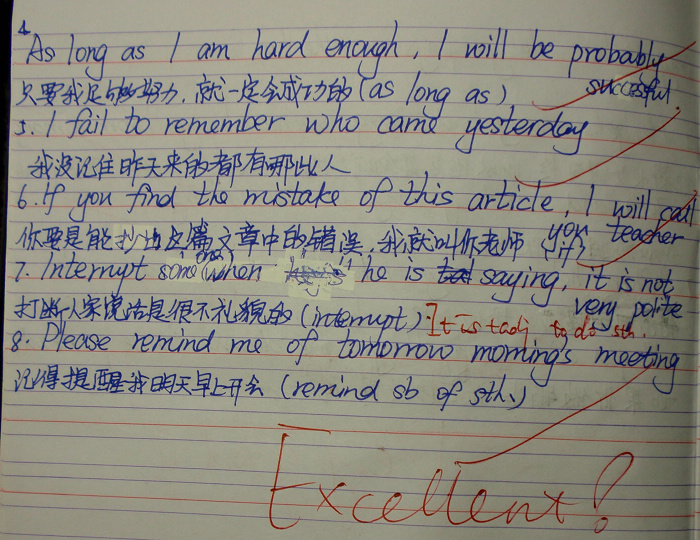 4
As long as I am hard enough, I will be probably
successful.
只要我足够努力,就一定会成功的(as long as)
5. I fail to remember who came yesterday
我没记住昨天来的都有哪些人
6. If you find the mistake of this article, I will call
you teacher
你要是能抄出这篇文章中的错误,我就叫你老师 (if)
7. Interrupt some(one) when he is saying, it is not
very polite
打断人家说话是很不礼貌的(interrupt) It is + adj to do sth.
8. Please remind me of tomorrow morning's meeting
记得提醒我明天早上开会 (remind sb of sth.)
Excellent!